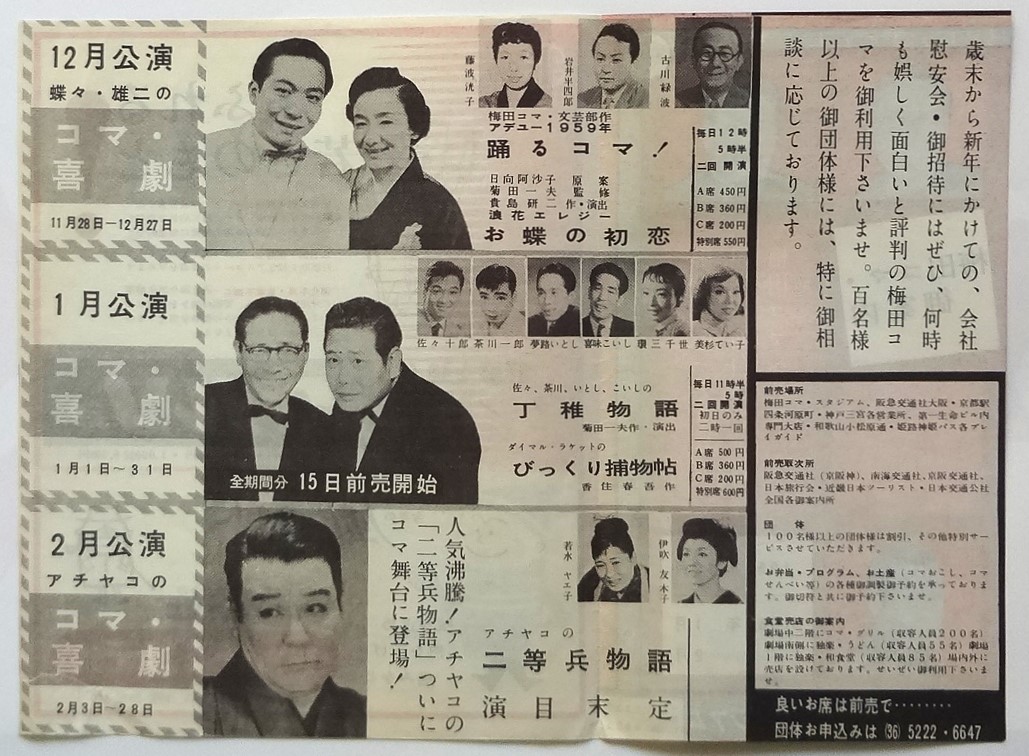 12月公演
蝶々・雄二の
コマ・
喜劇
11月28日―12月27日
藤波洸子
岩井半四郎
古川緑波
梅田コマ・文芸部作
アデュー1959年
踊るコマ！
日向阿沙子 原案
菊田一夫 監修
貴島研二 作・演出
浪花エレジー
お蝶の初恋
毎日12時
5時半
二回開演
A席 450円
B席 360円
C席 200円
特別席 550円
1月公演
コマ・
喜劇
1月1日～31日
全期間分 15日前売開始
佐々十郎
茶川一郎
夢路いとし
喜味こいし
環三千世
美杉てい子
佐々、茶川、いとし、こいしの
丁稚物語
菊田一夫作・演出
ダイマル・ラケットの
びっくり捕物帖
香住春吾作
毎日11時半
5時
二回開演
初日のみ
二時一回
A席 500円
B席 360円
C席 200円
特別席 600円
2月公演
アチャコの
コマ・
喜劇
2月3日―28日
人気沸騰！アチャコの
「二等兵物語」ついに
コマ舞台に登場！
若水ヤエ子
伊吹友木子
アチャコの
二等兵物語
演目末定
歳末から新年にかけての、会社
慰安会・御招待にはぜひ、何時
も娯しく面白いと評判の梅田コ
マを御利用下さいませ。百名様
以上の御団体様には、特に御相
談に応じております。
前売場所
梅田コマ・スタジアム、阪急交通社大阪・京都駅
四条河原町・神戸三宮各営業所、第一生命ビル内
専門大店・和歌山小松原通・姫路神姫バス各プレ
イガイド
前売取次所
阪急交通社（京阪神）、南海交通社、京阪交通社、
日本旅行会・近畿日本ツーリスト・日本交通公社
全国各御案内所
団体
100名様以上の団体様は割引、その他特別サー
ビスさせていただきます。
お弁当・プログラム、お土産（コマおこし、コマ
せんべい等）の各種御調製御予約を承っておりま
す。御切符と共に御予約下さいませ。
食堂売店の御案内
劇場中二階にコマ・グリル（収容人員200名）
劇場南側に独楽・うどん（収容人員55名）劇場
1階に独楽・和食堂（収容人員85名）場内外に
売店を設けております。せいぜい御利用下さいま
せ。
良いお席は前売で………
団体お申込みは(36)5222・6647